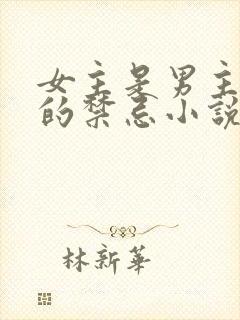 女主是男主
的禁忌小說
林新華